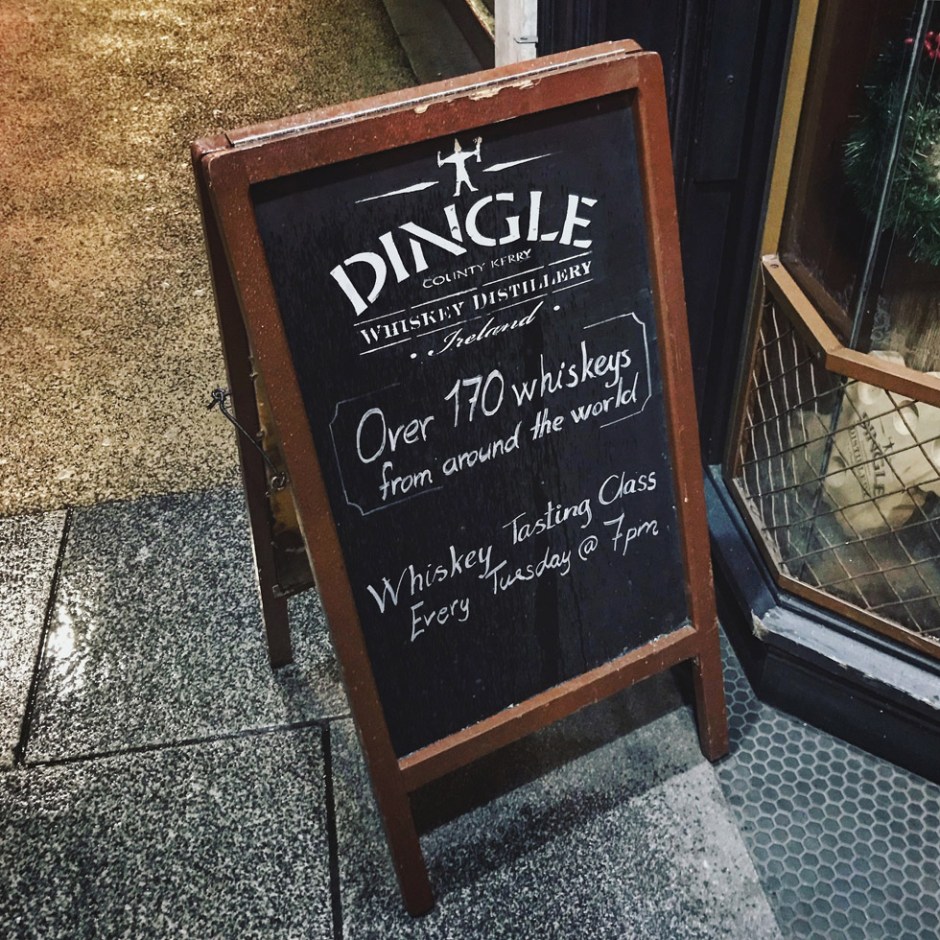 DINGLE
COUNTY KERRY
WHISKEY DISTILLERY
· Ireland ·
Over 170 whiskeys
from around the world
Whiskey Tasting Class
Every Tuesday @ 7pm
DINGLE